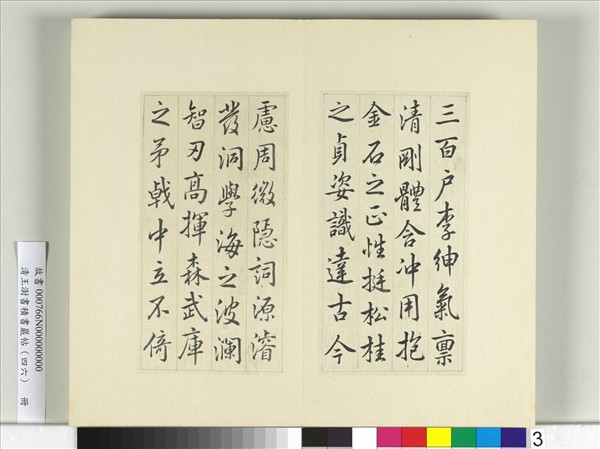 三百户李紳氣禀
清剛體含冲用抱
金石之正性挺松桂
之貞姿識達古今
慮周微隱詞源濬
發洞學海之波瀾
智刃高揮森武庫
之矛戟中立不倚
故書000766N000000000
清王澍書積書巖帖（四六） 冊
3